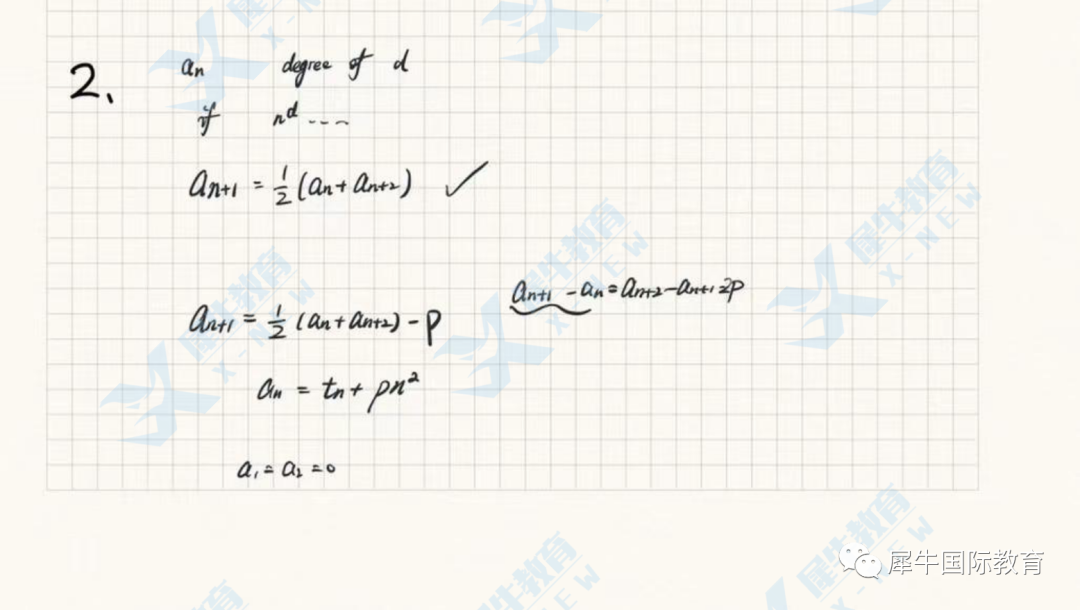 2.
aₙ degree of d
if nᵈ ----
aₙ₊₁ = ½(aₙ + aₙ₊₂) ✓
aₙ₊₁ - aₙ = aₙ₊₂ - aₙ₊₁ 2p
aₙ₊₁ = ½(aₙ + aₙ₊₂) - p
aₙ = tₙ + pn²
a₁ = a₂ = 0
犀牛国际教育
犀牛教育
X-NEW